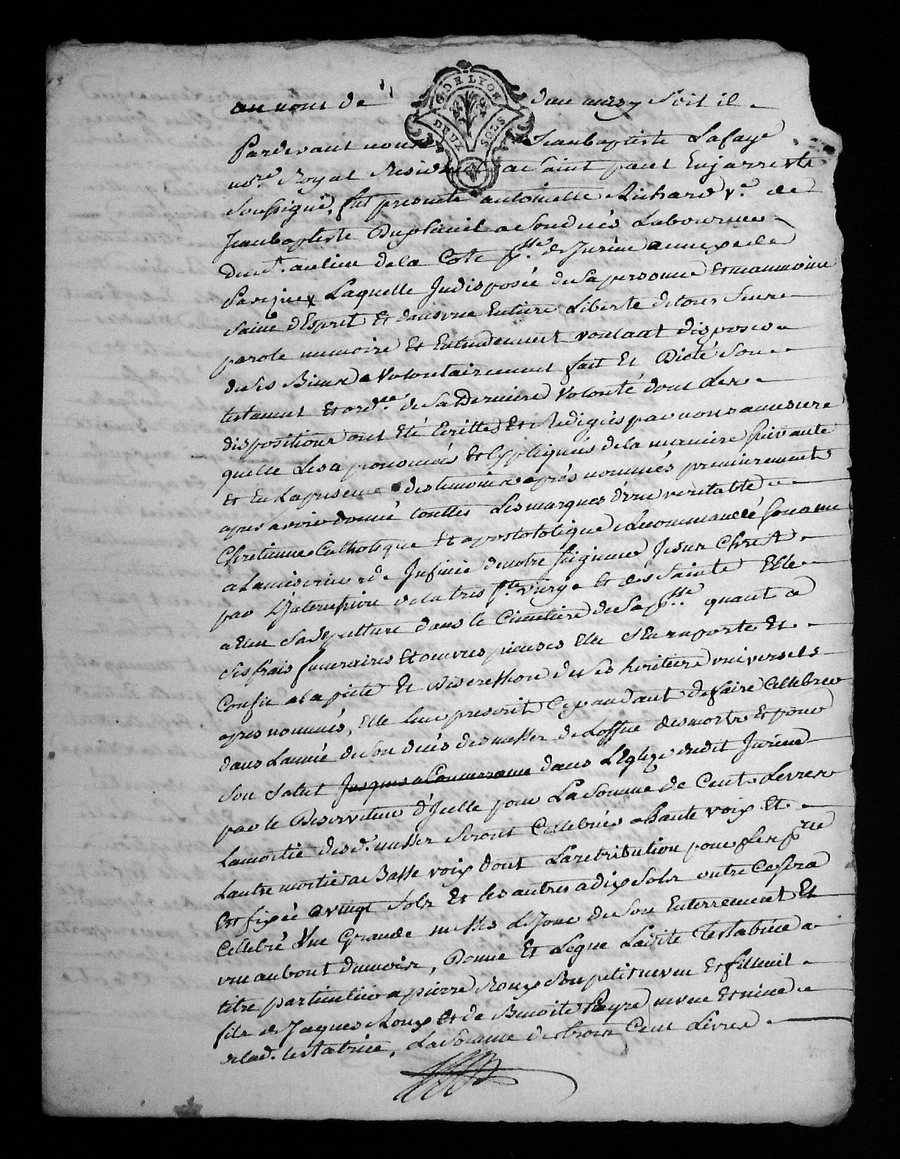 au nom de dieu ainsy soit il
G. DE LYON
DEUX SOLS
Pardevant nous Jeanbaptiste Lafaye
no.re Royal Resid a Saint paul Enjarreste
soussigné, fut presente antoinette Richard v.e de
Jeanbaptiste Duplanil a son decés Laboureur
au lieu de la Cote p.sse de Jurieu annexe de
Laquelle Indisposée de sa personne Et neanmoins
saine d'Esprit Et dans une Entiere Liberté de tous sens
parole memoire Et Entendement voulant disposer
de ses Biens a volontairement fait Et Dicté son
testament Et ord.ce de sa Derniere volonté dont Les
dispositions ont été Ecrittes Et Redigées par nous a mesure
quelle Les a prononcés et Expliquées de la maniere suivante
et En La presence des temoins aprés nommés premierement
apres avoir donné touttes Les marques d'une veritable
Chretienne Catholique et apostolique a Recommandé son ame
a La misericorde Infinie de notre seigneur Jesus Christ
par L'Intercession de la tres s.te vierge et des Saints Elle
a Elu Sa sepulture dans le Cimetiere de sa p.sse quant a
ses frais funeraires Et oeuvres pieuses Elle s'En raporte Et
Confie a la pieté Et Discretion de ses heritiers universels
apres nommés, Elle leur prescrit Cependant de faire Cellebrer
dans L'année de son decés des messes de L'office des morts Et pour
son salut dans L'Eglise dudit Jurieu
par le Deserviteur d'Icelle pour La somme de Cent Livres
La moitié des d. messes seront Cellebrées a haute voix Et
L'autre moitié a Basse voix dont La retribution pour Les p.res
Est fixée a vingt sols Et les autres a dix sols outre Ce sera
Celebré Une Grande messe Le Jour de son Enterrement Et
une au bout du mois, Donne Et Legue Ladite Testatrice a
titre particulier a pierre Roux son petit neveu Et filleul
fils de Jacques Roux et de Benoite Peyre neveu Et niece
de lad. testatrice, La somme de trois Cent Livres